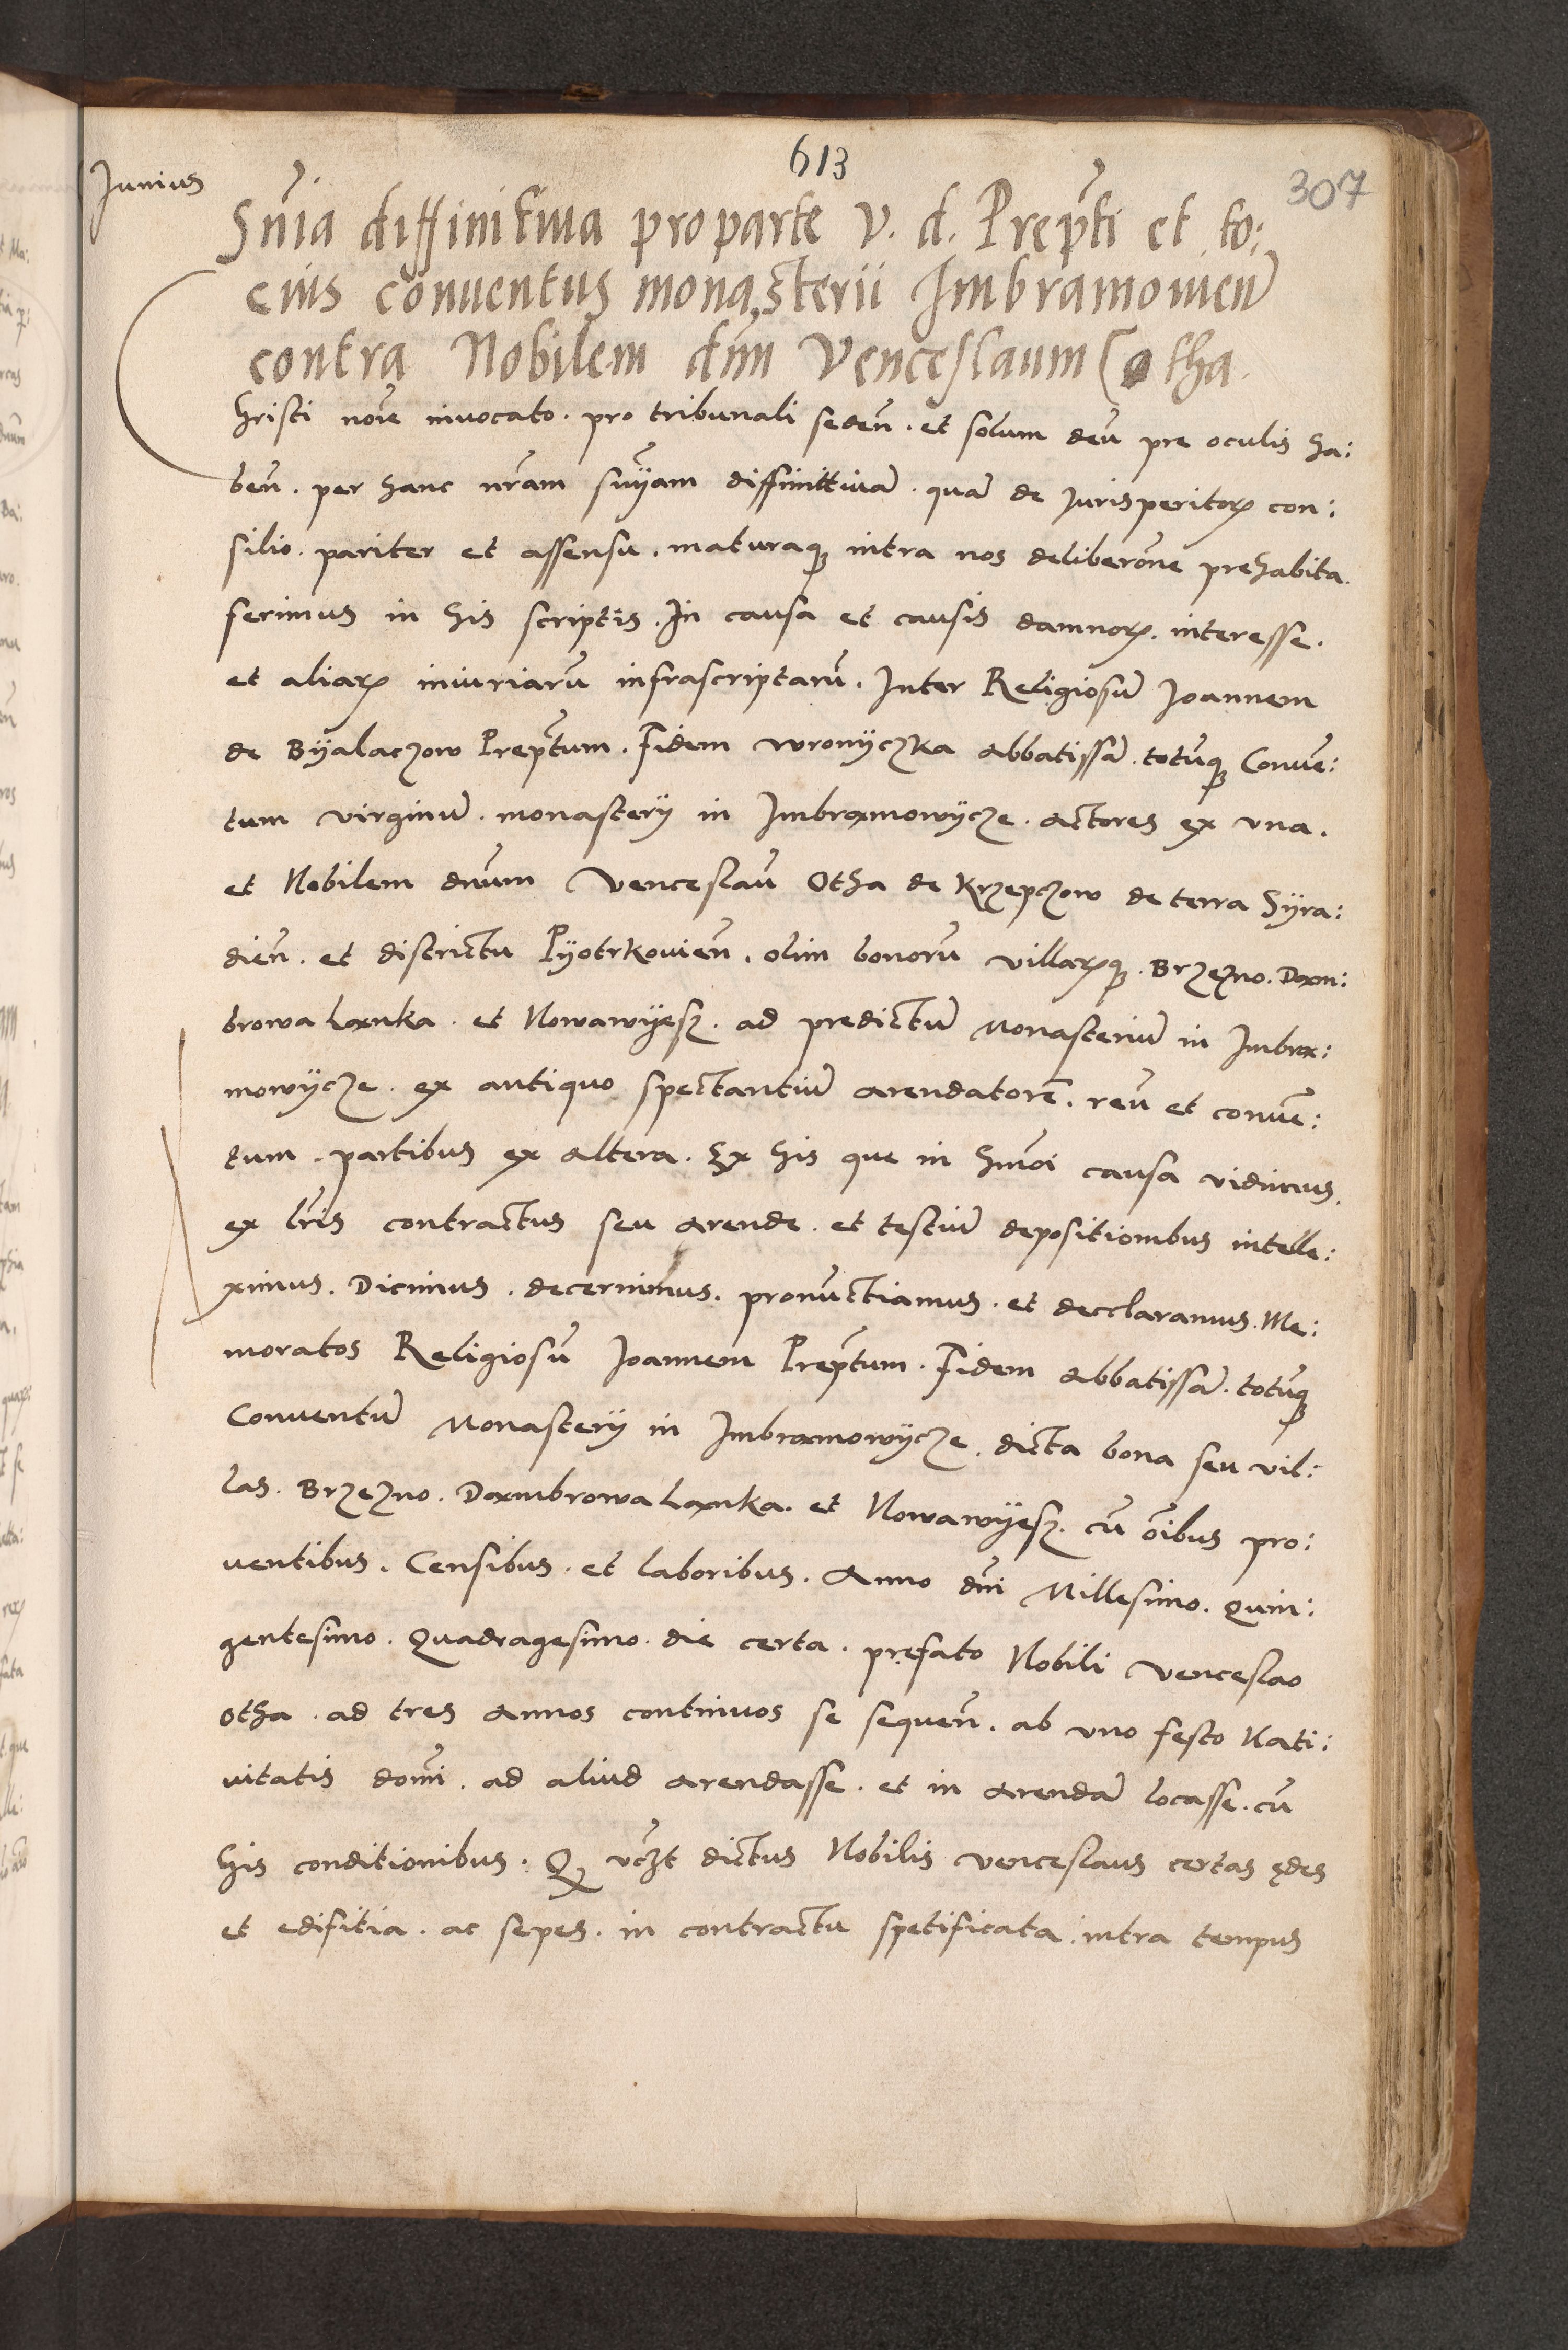 613
307
Junius
Snīa diffinitiva pro parte V. d. Prep̄ti et to:
cius conventus monasterii Imbramovien̄
contra Nobilem dn̄m Venceslaum Otha.
Christi noīe invocato . pro tribunali seden̄ . et solum deū pre oculis ha:
ben̄ . per hanc nr̄am sn̄iam diffinitivā . quā de Jurisperitoꝝ con:
silio . pariter et assensu . maturaqꝫ intra nos deliberōne prehabita .
ferimus in his scriptis . In causa et causis damnoꝝ . interesse .
et aliaꝝ iniuriarū infrascriptarū . Inter Religiosū Joannem
de Byalaczow Prep̄tum . Fidem wronyczka abbatissā . totūqꝫ Convē:
tum virginū . monastery in Imbramowycze . actores ex una .
et Nobilem dn̄um Venceslaū Otha de Krzepczow de terra Syra:
dien̄ . et districtu Pyotrkovien̄ . olim bonorū villaꝝqꝫ . Brzezno . Dam:
browa Lanka . et Nowawyesz . ad predictū Monasteriū in Imbra:
mowycze . ex antiquo spectantiū arendatorē . reū et convē:
tum . partibus ex altera . Ex his que in hm̄oi causa vidimus .
ex lr̄is contractus seu arende . et testiū depositionibus intelle:
ximus . Dicimus . decernimus . pronūctiamus . et decclaramus . Me:
moratos Religiosū Joannem Prep̄tum . Fidem abbatissā . totūqꝫ
Conventū Monastery in Imbramowycze . dicta bona seu vil:
las . Brzezno . Dambrowa Lanka . et Nowawyesz . cū oībus pro:
ventibus . Censibus . et laboribus . Anno dn̄i Millesimo . Quin:
gentesimo . Quadragesimo . die certa . prefato Nobili Venceslao
Otha . ad tres annos continuos se sequen̄ . ab uno festo Nati:
vitatis domī . ad aliud arendasse . et in arendā locasse . cū
his conditionibus . Qꝫ vcꝫt dictus Nobilis Venceslaus certas ędes
et edifitia . ac sepes . in contractu spetificata . intra tempus